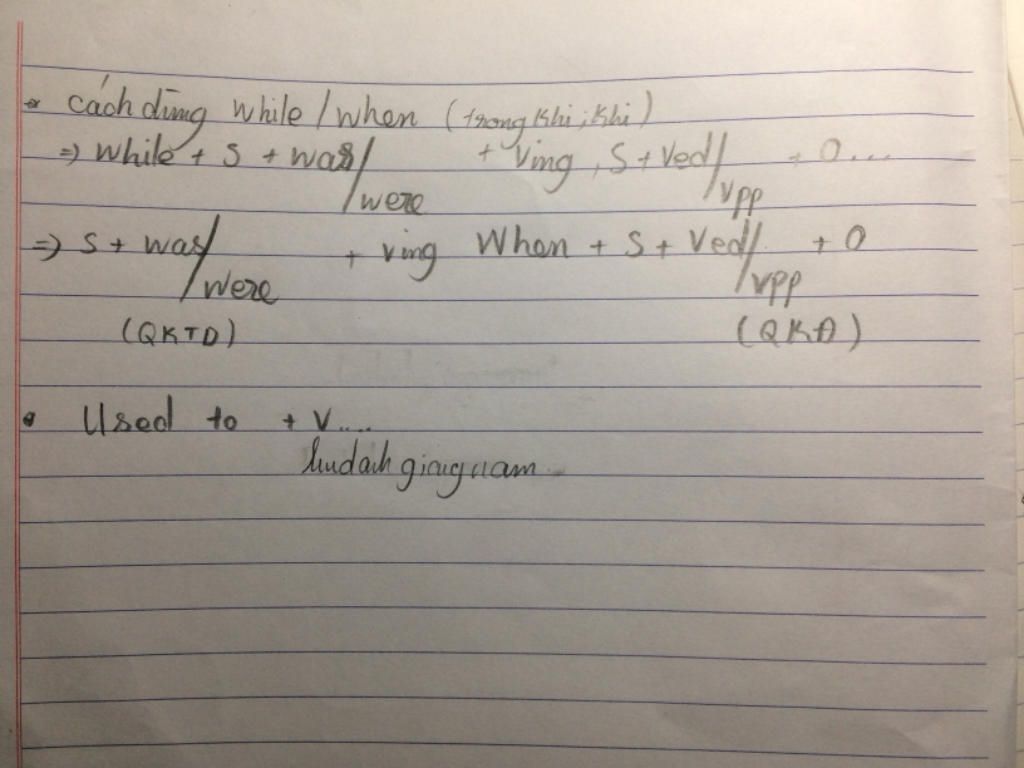 cách dùng while / when (trong khi; khi)
=> while + S + was/were + Ving, S + Ved/Vpp + O...
=> S + was/were + Ving When + S + Ved/Vpp + O
(QKTD) (QKĐ)
• Used to + V....